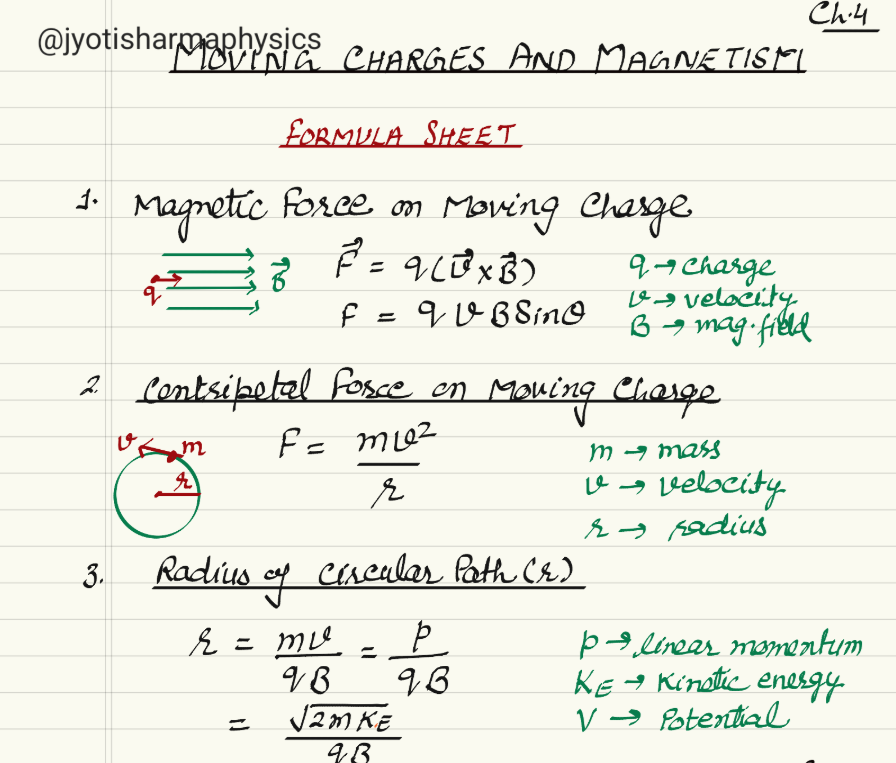 Ch.4
@jyotisharmaphysics
MOVING CHARGES AND MAGNETISM
FORMULA SHEET
1. Magnetic Force on Moving Charge
q B⃗ F⃗ = q(v⃗ x B⃗) q → charge
F = q v B Sinθ v → velocity
B → mag. field
2. Centripetal Force on Moving Charge
v m r F = mv²/r m → mass
v → velocity
r → radius
3. Radius of circular Path (r)
r = mv/qB = p/qB p → linear momentum
KE → Kinetic energy
= √2mKE/qB V → Potential